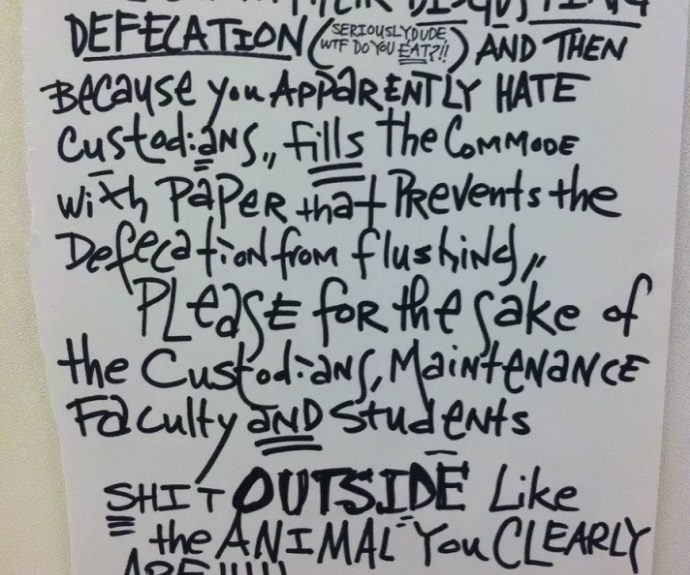 THEIR DISGUSTING
DEFECATION (SERIOUSLY DUDE,
WTF DO YOU EAT?!!) AND THEN
BECAUSE you APPARENTLY HATE
Custodians,, fills the COMMODE
with PAPER that PREVENTS the
Defecation from flushing,,
PLEASE FOR the sake of
the Custodians, MaintENANCE
FaCulty AND StudENts
SHIT OUTSIDE Like
the ANIMAL You CLEARLY
ARE!!!!!